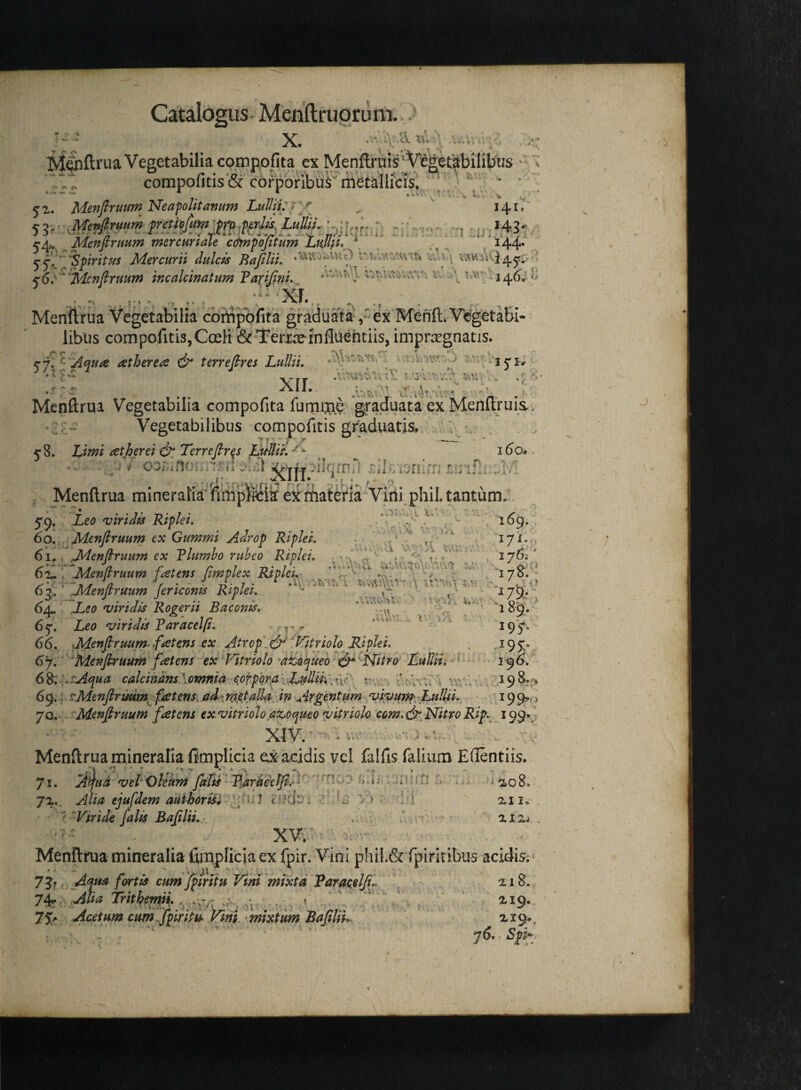 Catalogus Menſtruorum.
X.
Menſtrua Vegetabilia compoſita ex Menſtruis Vegetabilibus
compoſitis & corporibus metallicis.
52. Menſtruum Neapolitanum Lullii. 141.
53. Menſtruum pretioſum pro perlis Lullii. 143.
54. Menſtruum mercuriale compoſitum Lullii. 144.
55. Spiritus Mercurii dulcis Baſilii. 145.
56. Menſtruum incalcinatum Pariſini. 146.
XI.
Menſtrua Vegetabilia compoſita graduata, ex Menſt. Vegetabi-
libus compoſitis, Cœli & Terræ influentiis, imprægnatis.
57. Aquæ æthereæ & terreſtres Lullii. 151.
XII.
Menſtrua Vegetabilia compoſita ſumme graduata ex Menſtruis
Vegetabilibus compoſitis graduatis.
58. Limi ætherei & Terreſtres Lullii. 160.
XIII.
Menſtrua mineralia ſimplicia ex materia Vini phil. tantùm.
59. Leo viridis Riplei. 169.
60. Menſtruum ex Gummi Adrop Riplei. 171.
61. Menſtruum ex Plumbo rubeo Riplei. 176.
62. Menſtruum fœtens ſimplex Riplei. 178.
63. Menſtruum ſericonis Riplei. 179.
64. Leo viridis Rogerii Baconis. 189.
65. Leo viridis Paracelſi. 195.
66. Menſtruum fœtens ex Atrop & Vitriolo Riplei. 195.
67. Menſtruum fœtens ex Vitriolo azoqueo & Nitro Lullii. 196.
68. Aqua calcinans omnia corpora Lullii. 198.
69. Menſtruum fœtens ad metalla in Argentum vivum Lullii. 199.
70. Menſtruum fœtens ex vitriolo azoqueo vitriolo com. & Nitro Rip. 199.
XIV.
Menſtrua mineralia ſimplicia ex acidis vel ſalſis ſalium Eſſentiis.
71. Aqua vel Oleum ſalis Paracelſi. 208.
72. Alia ejuſdem authoris. 211.
Viride ſalis Baſilii. 212.
XV.
Menſtrua mineralia ſimplicia ex ſpir. Vini phil. & ſpiritibus acidis.
73. Aqua fortis cum ſpiritu Vini mixta Paracelſi. 218.
74. Alia Trithemii. 219.
75. Acetum cum ſpiritu Vini mixtum Baſilii. 219.
76. Spi-